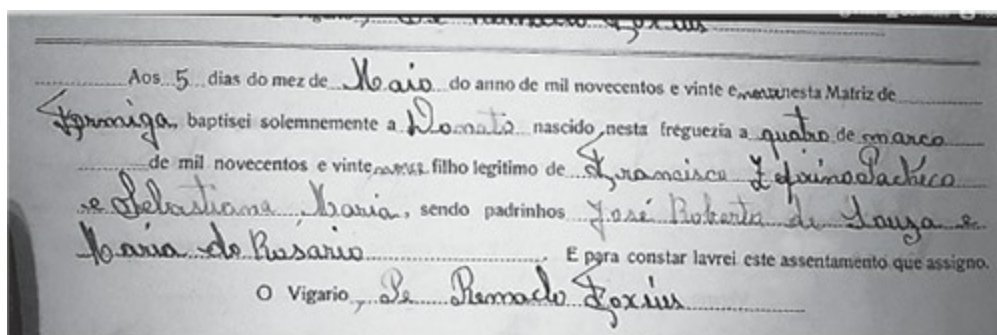 O Vigario, Pe Remaclo Foxius
Aos 5 dias do mez de Maio do anno de mil novecentos e vinte e nove nesta Matriz de
Formiga, baptisei solemnemente a Donato nascido nesta freguezia a quatro de março
de mil novecentos e vinte nove filho legitimo de Francisco Zeferino Pacheco
e Sebastiana Maria, sendo padrinhos José Roberto de Souza e
Maria do Rosario. E para constar lavrei este assentamento que assigno.
O Vigario, Pe Remaclo Foxius